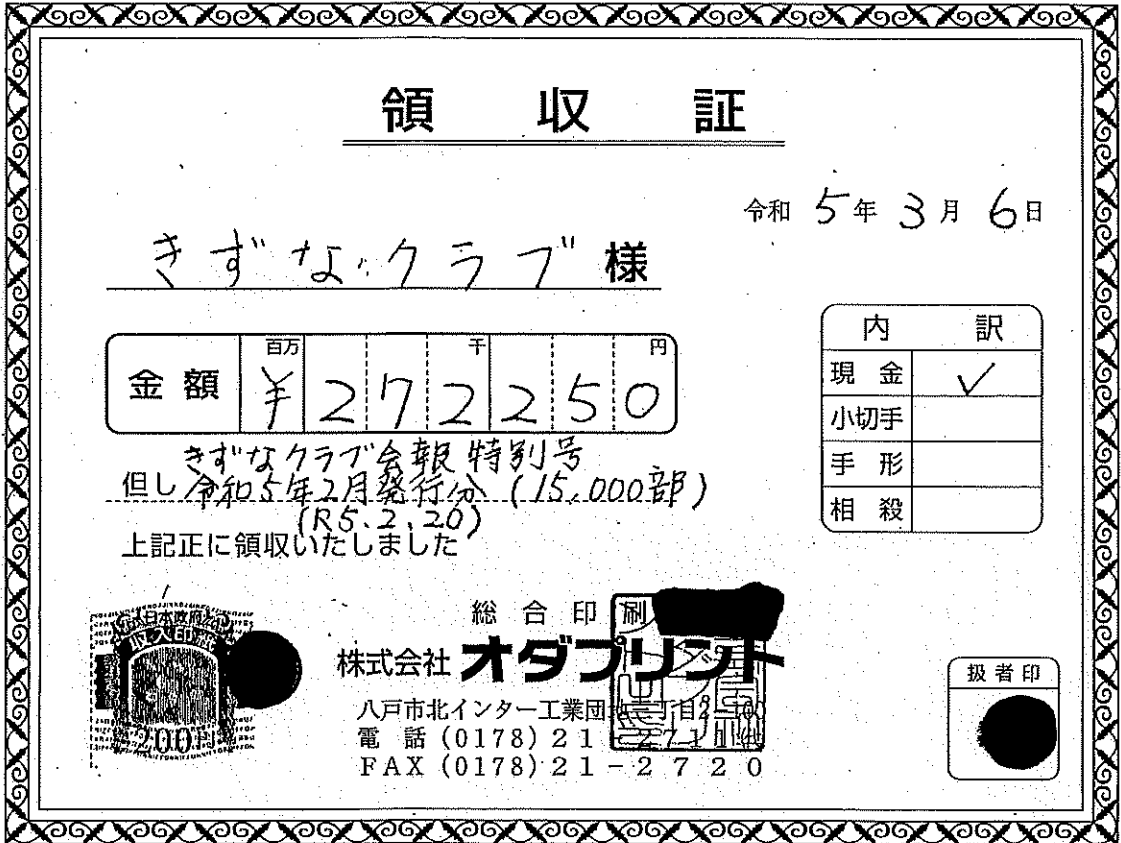 領収証
令和 5年 3月 6日
きずなクラブ 様
金額 百万 千 円
¥272250
内訳
現金 ✓
小切手
手形
相殺
きずなクラブ会報 特別号
但し 令和5年2月発行分 (15,000部)
(R5.2.20)
上記正に領収いたしました
日本政府
収入印紙
200円
総合印刷
株式会社 オダプリント
八戸市北インター工業団地
電話 (0178) 21
FAX (0178) 21-2720
扱者印